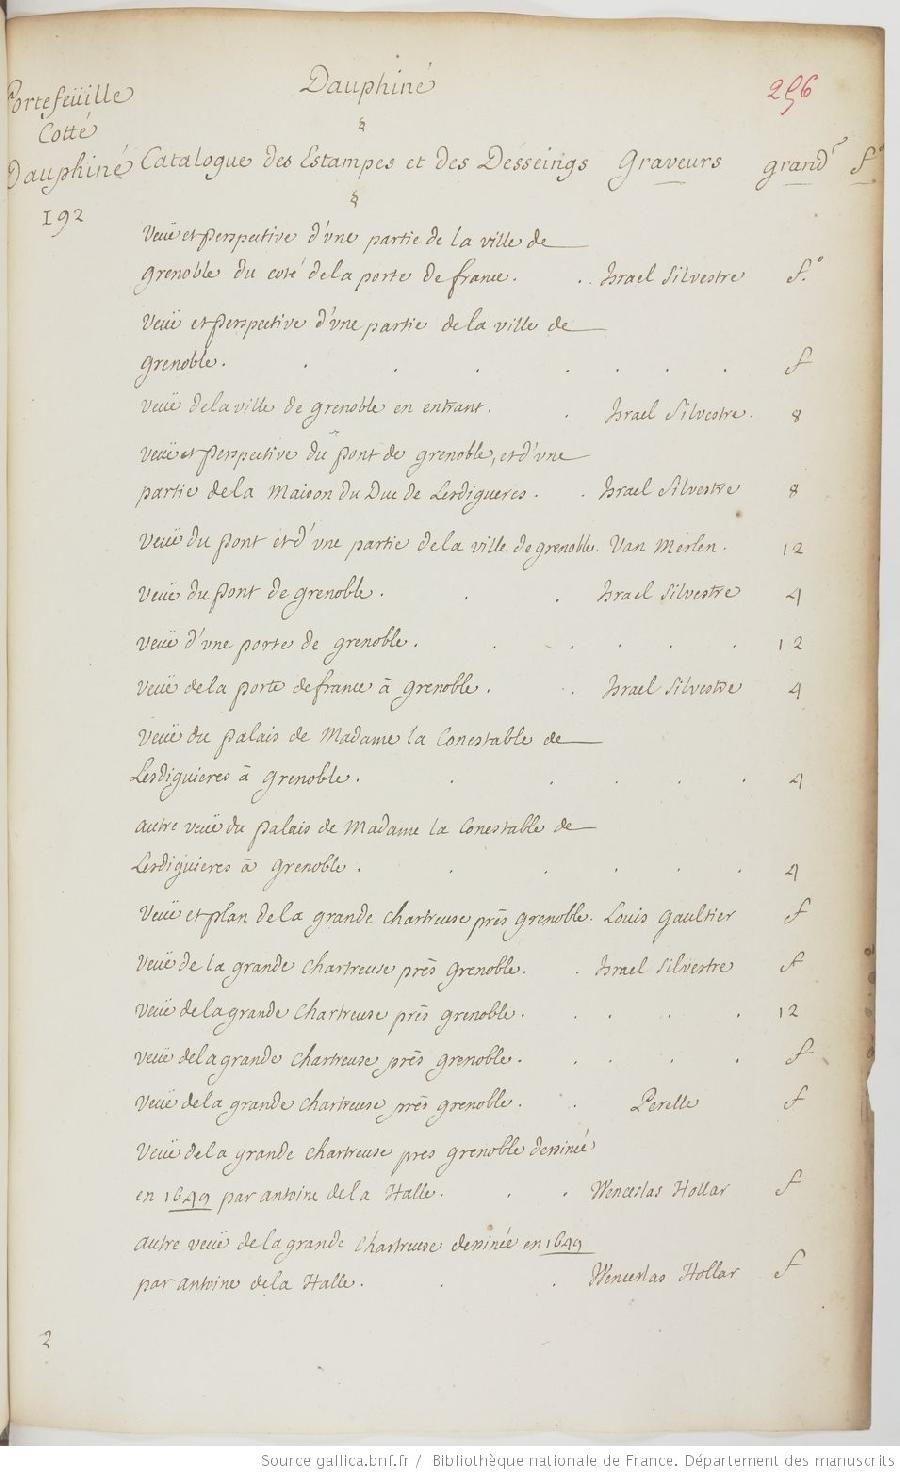 Dauphiné
256
Portefeüille
Cotté
Dauphiné
192
Catalogue des Estampes et des Desseings Graveurs grandr fo
Veuë et perspective d'vne partie de la ville de
grenoble du coté de la porte de france. . . Israel Silvestre f.o
Veuë et perspective d'vne partie de la ville de
grenoble. . . . . . . f
veuë de la ville de grenoble en entrant. . Israel Silvestre. 8
veuë et perspective du pont de grenoble, et d'vne
partie de la Maison du Duc de Lesdigueres. . Israel Silvestre 8
veuë du pont et d'vne partie de la ville de grenoble. Van Merlen. 12
veuë du pont de grenoble. . . Israel Silvestre 4
veuë d'vne porte de grenoble. . . . . . 12
veuë de la porte de france à grenoble. . Israel Silvestre 4
veuë du palais de Madame la Conestable de
Lesdiguieres à grenoble. . . . . . 4
autre veuë du palais de Madame la Conestable de
Lesdiguieres à grenoble. . . . . . 4
Veuë et plan de la grande chartreuse près grenoble. Louis gaultier f
Veuë de la grande chartreuse près grenoble. . Israel Silvestre f
veuë de la grande chartreuse près grenoble. . . . . 12
veuë de la grande chartreuse près grenoble. . . . . f
veuë de la grande chartreuse près grenoble. . Perelle f
Veuë de la grande chartreuse pres grenoble dessinée
en 1649 par antoine de la Halle. . . Wenceslas Hollar f
autre veuë de la grande Chartreuse dessinée en 1649
par antoine de la Halle. . . Wenceslas Hollar f
2
Source gallica.bnf.fr / Bibliothèque nationale de France. Département des manuscrits